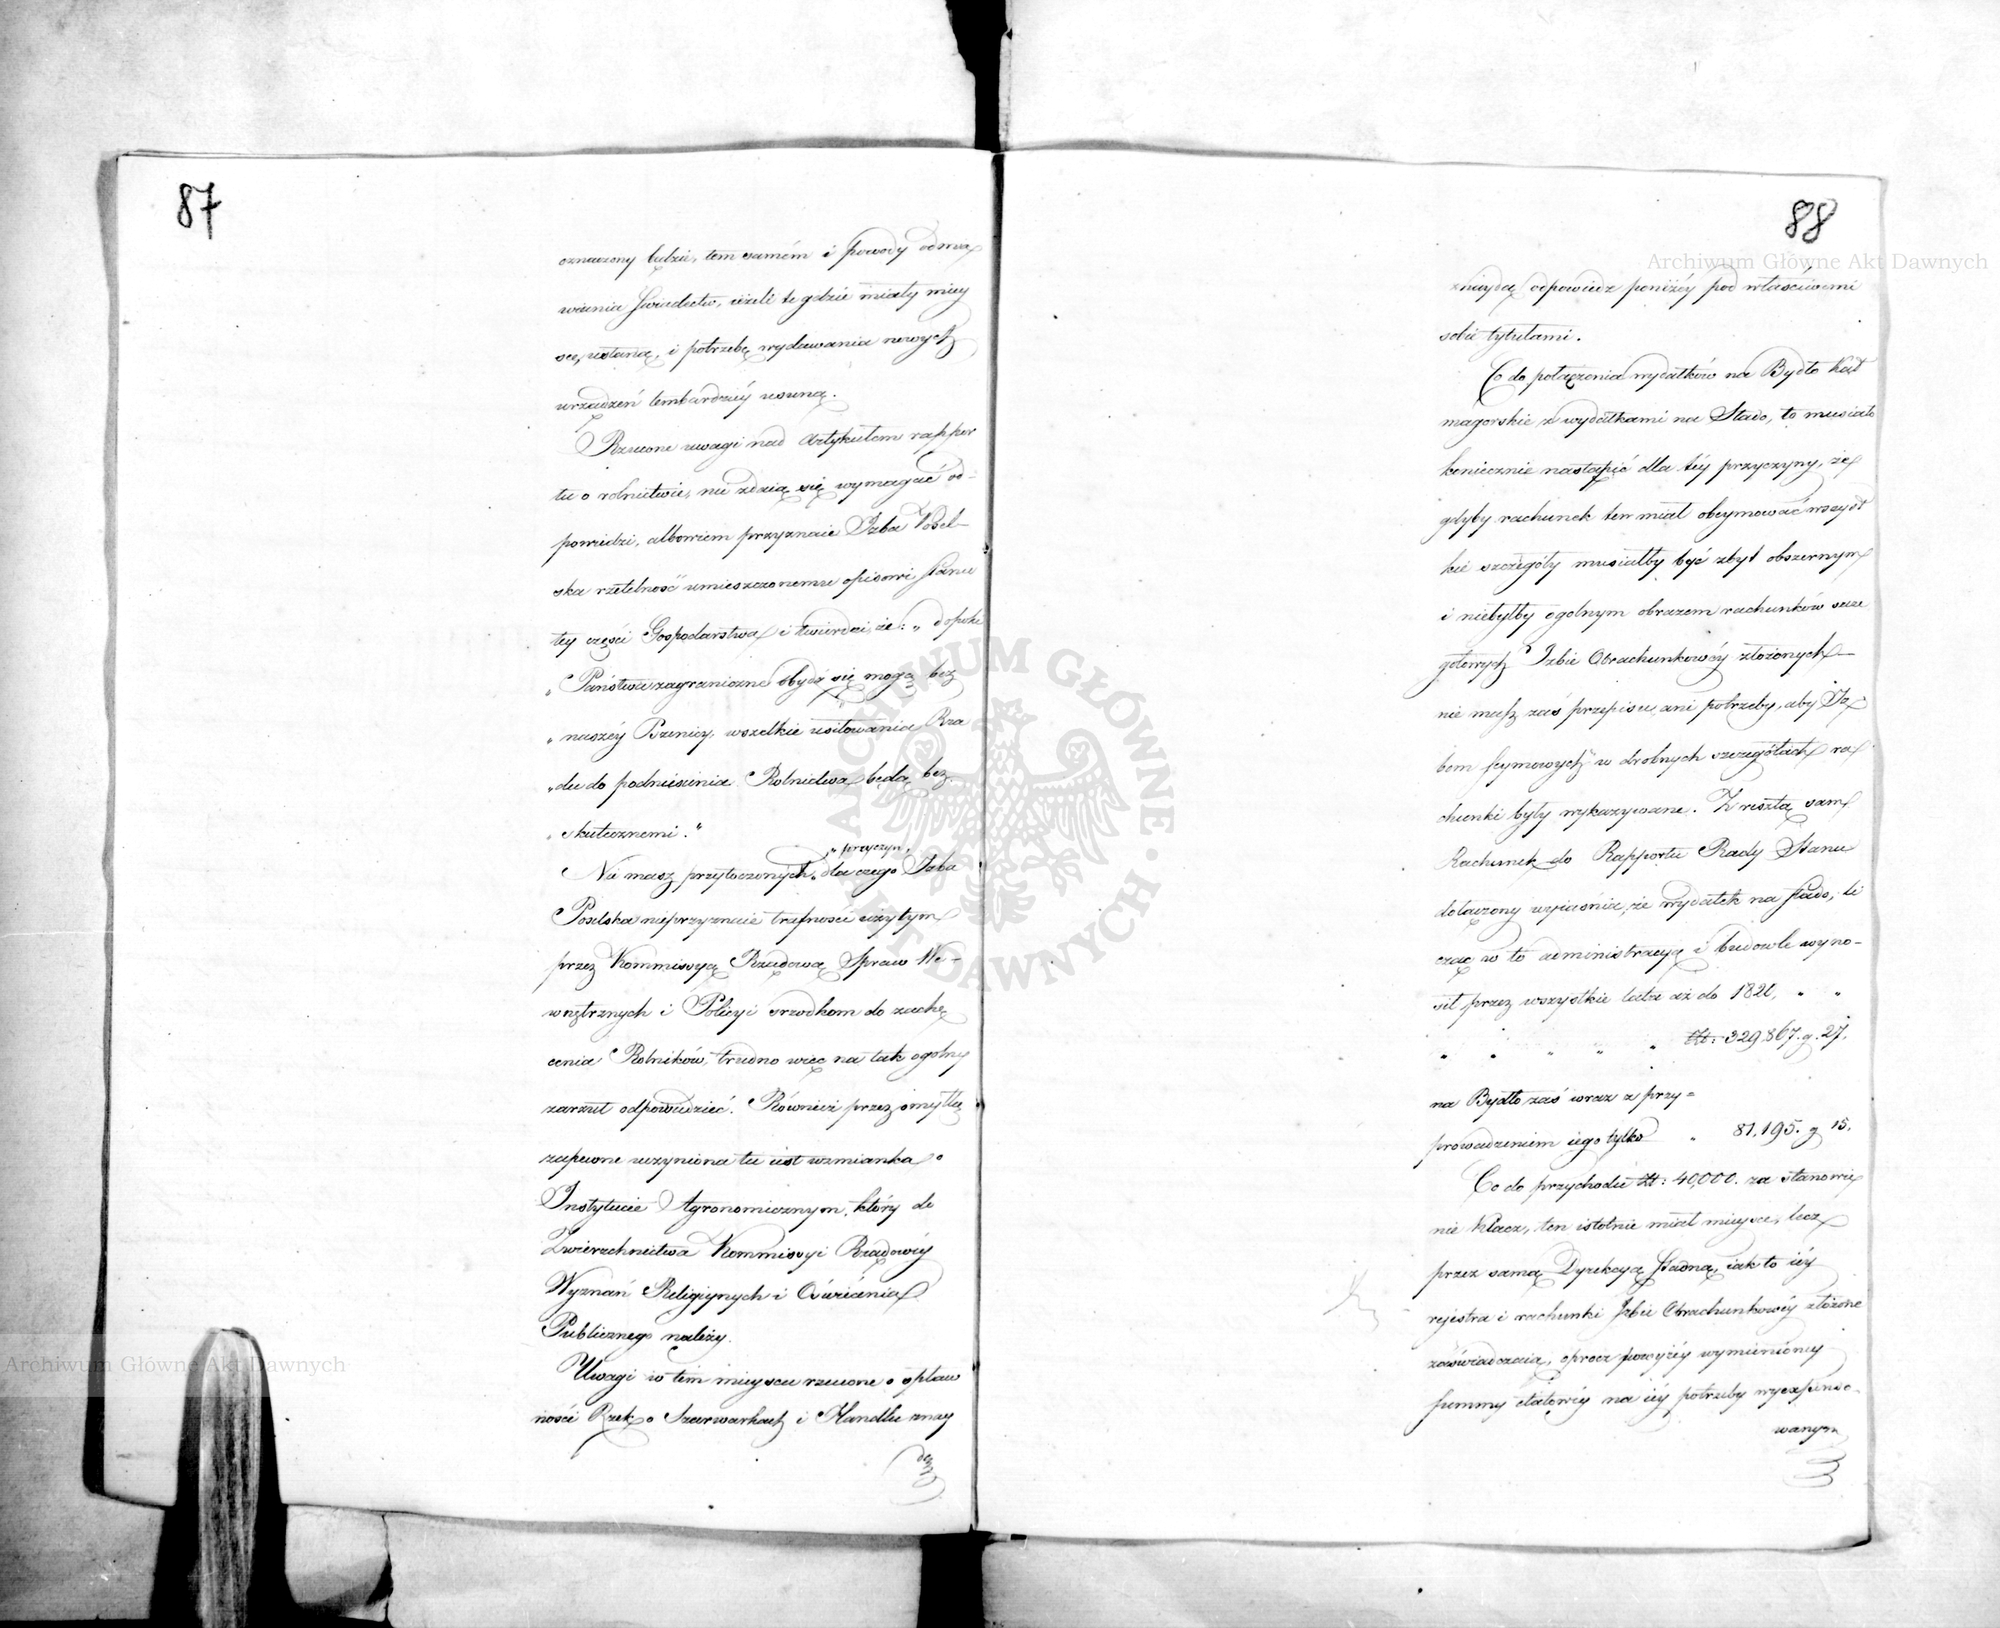 87
oznaczony będzie, tem samém i powody odma
wiania Swiadectw, ieżeli te gdzie miały miey
sce, ustaną, i potrzebę wydawania nowych
urządzeń tembardziéy usuną.
Rzucone uwagi nad Artykułem rappor
tu o rolnictwie, nie zdaią się wymagać od-
powiedzi, albowiem przyznaie Izba Posel-
ska rzetelność umieszczonemu opisowi stanu
tey części Gospodarstwa i twierdzi, że: „dopóki
„Państwa zagraniczne obydź się mogą bez
„naszéy Pszenicy, wszelkie usiłowania Rzą
„du do podniesienia Rolnictwa będą bez
„skutecznemi."
Nie masz przytoczonych „przyczyn, dla czego Izba
Poselska nieprzyznaie trafności użytym
przez Kommissyą Rządową Spraw We-
wnętrznych i Policyi srzodkom do zachę
cenia Rolników, trudno więc na tak ogolny
zarzut odpowiedzieć. Również przez omyłkę
zapewne uczyniona tu iest wzmianka o
Instytucie Agronomicznym, który do
Zwierzchnictwa Kommissyi Rządowéy
Wyznań Religiynych i Oświécenia
Publicznego należy.
Uwagi w tém mieyscu rzucone o spław
ności Rzek, o Szarwarkach i Handlu znay
dą
88
znaydą odpowiedz poniżéy pod właściwemi
sobie tytułami.
Co do połączenia wydatków na Bydło Chał
magorskie z wydatkami na Stado, to musiało
koniecznie nastąpić dla téy przyczyny, że
gdyby rachunek ten miał obeymować wszyst
kie szczegóły musiałby być zbyt obszernym
i niebyłby ogolnym obrazem rachunków szcze
gołowych Izbie Obrachunkowéy złożonych
nie masz zaś przepisu, ani potrzeby, aby Iz
bom Seymowych w drobnych szczegółach ra
chunki były wykazywane. Z resztą sam
Rachunek do Rapportu Rady Stanu
dołączony wyiaśnia, że wydatek na Stado, li
cząc w to administracyą i budowle wyno-
sił przez wszystkie lata aż do 1820, „ „
„ „ „ „ „ Zł: 329,867. g. 27.
na Bydło zaś wraz z przy=
prowadzeniem iego tylko „ 81,195. g 15.
Co do przychodu Zł: 40,000. za stanowie
nie Klacz, ten istotnie miał mieysce, lecz
przez samą Dyrekcyą Stadną, iak to iéy
rejestra i rachunki Izbie Obrachunkowéy złożone
zaświadczaią, oprocz powyżéy wymienionéy
summy etatowéy na iéy potrzeby wyexpenso-
wanym
Archiwum Główne Akt Dawnych
Archiwum Główne Akt Dawnych
ARCHIWUM GŁÓWNE AKT DAWNYCH